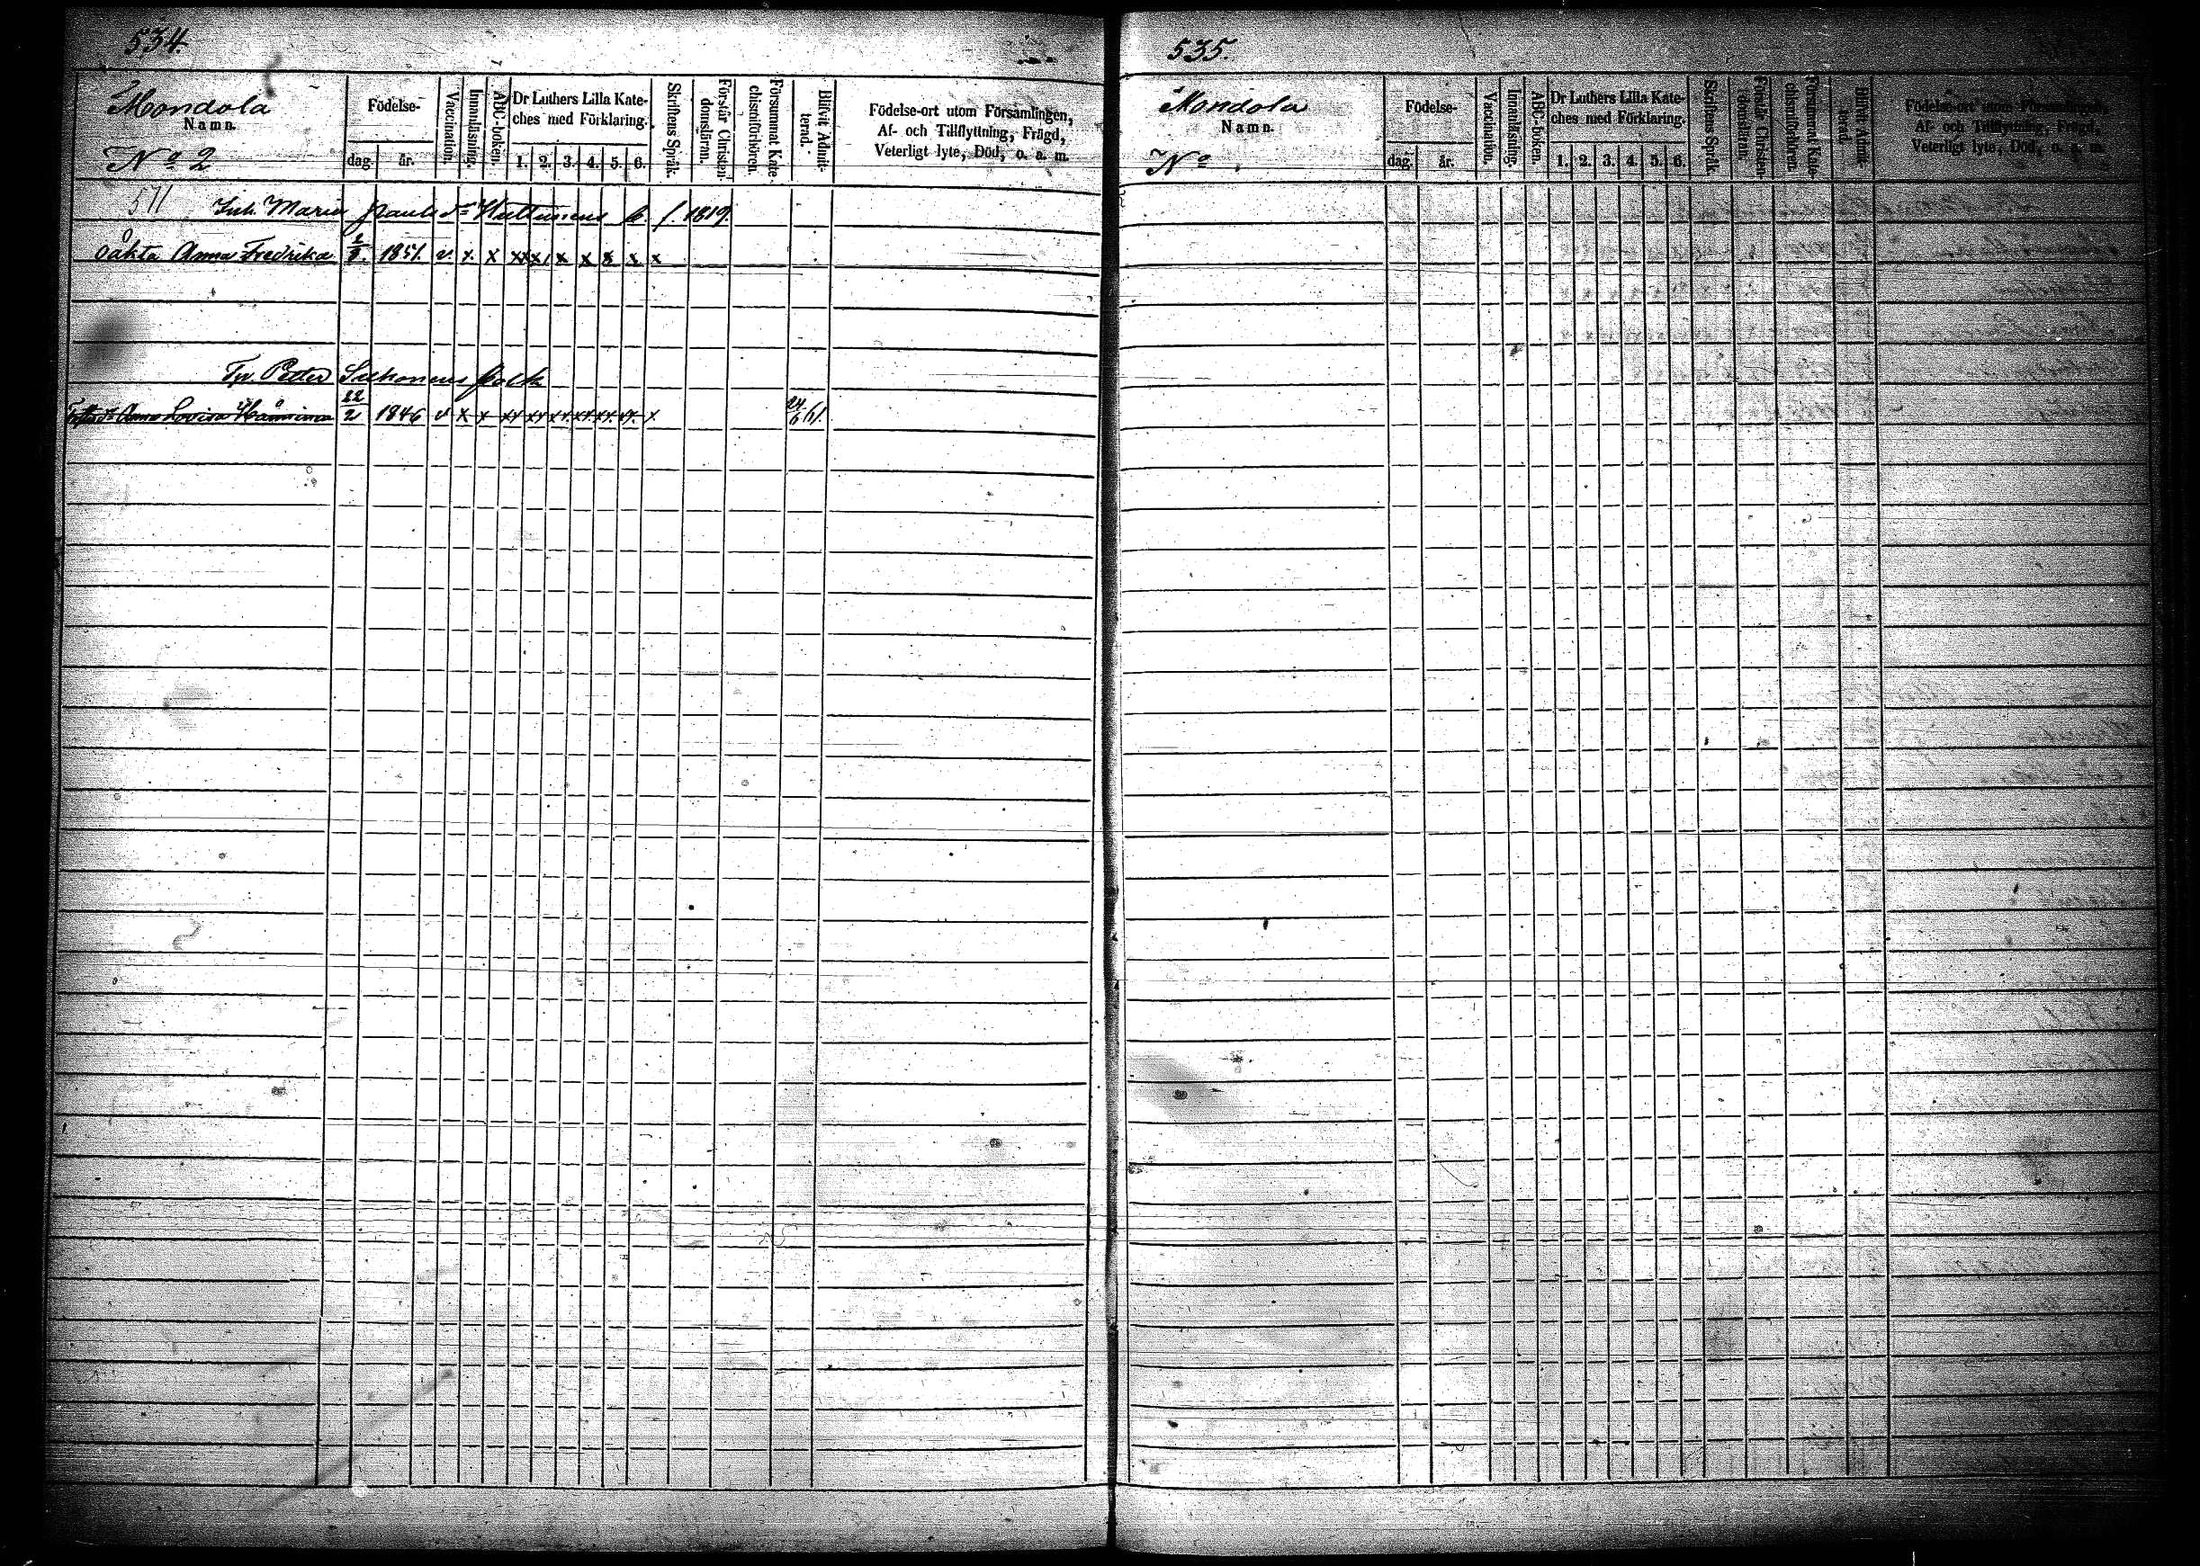 534.
Mondola
Namn.
No 2
Födelse-
dag.
år.
Vaccination.
Innanläsning.
ABC-boken.
Dr Luthers Lilla Kate-
ches med Förklaring.
1. 2. 3. 4. 5. 6.
Skriftens Språk.
Förstår Christen-
domsläran.
Försummat Kate-
chismiförhören.
Blifvit Admit-
terad.
Födelse-ort utom Församlingen,
Af- och Tillflyttning, Frägd,
Veterligt lyte, Död, o. a. m.
511 Inh. Maria f. 1819.
oäkta Anna Fredrika 1851. v. x. x xx x x x x x x
Peter folk
Anna Lovisa 22/2 1846 v x x xx xx xx xx xx xx x 24/6 61.
535.
Mondola
Namn.
No
Födelse-
dag.
år.
Vaccination.
Innanläsning.
ABC-boken.
Dr Luthers Lilla Kate-
ches med Förklaring.
1. 2. 3. 4. 5. 6.
Skriftens Språk.
Förstår Christen-
domsläran.
Försummat Kate-
chismiförhören.
Blifvit Admit-
terad.
Födelse-ort utom Församlingen,
Af- och Tillflyttning, Frägd,
Veterligt lyte, Död, o. a. m.